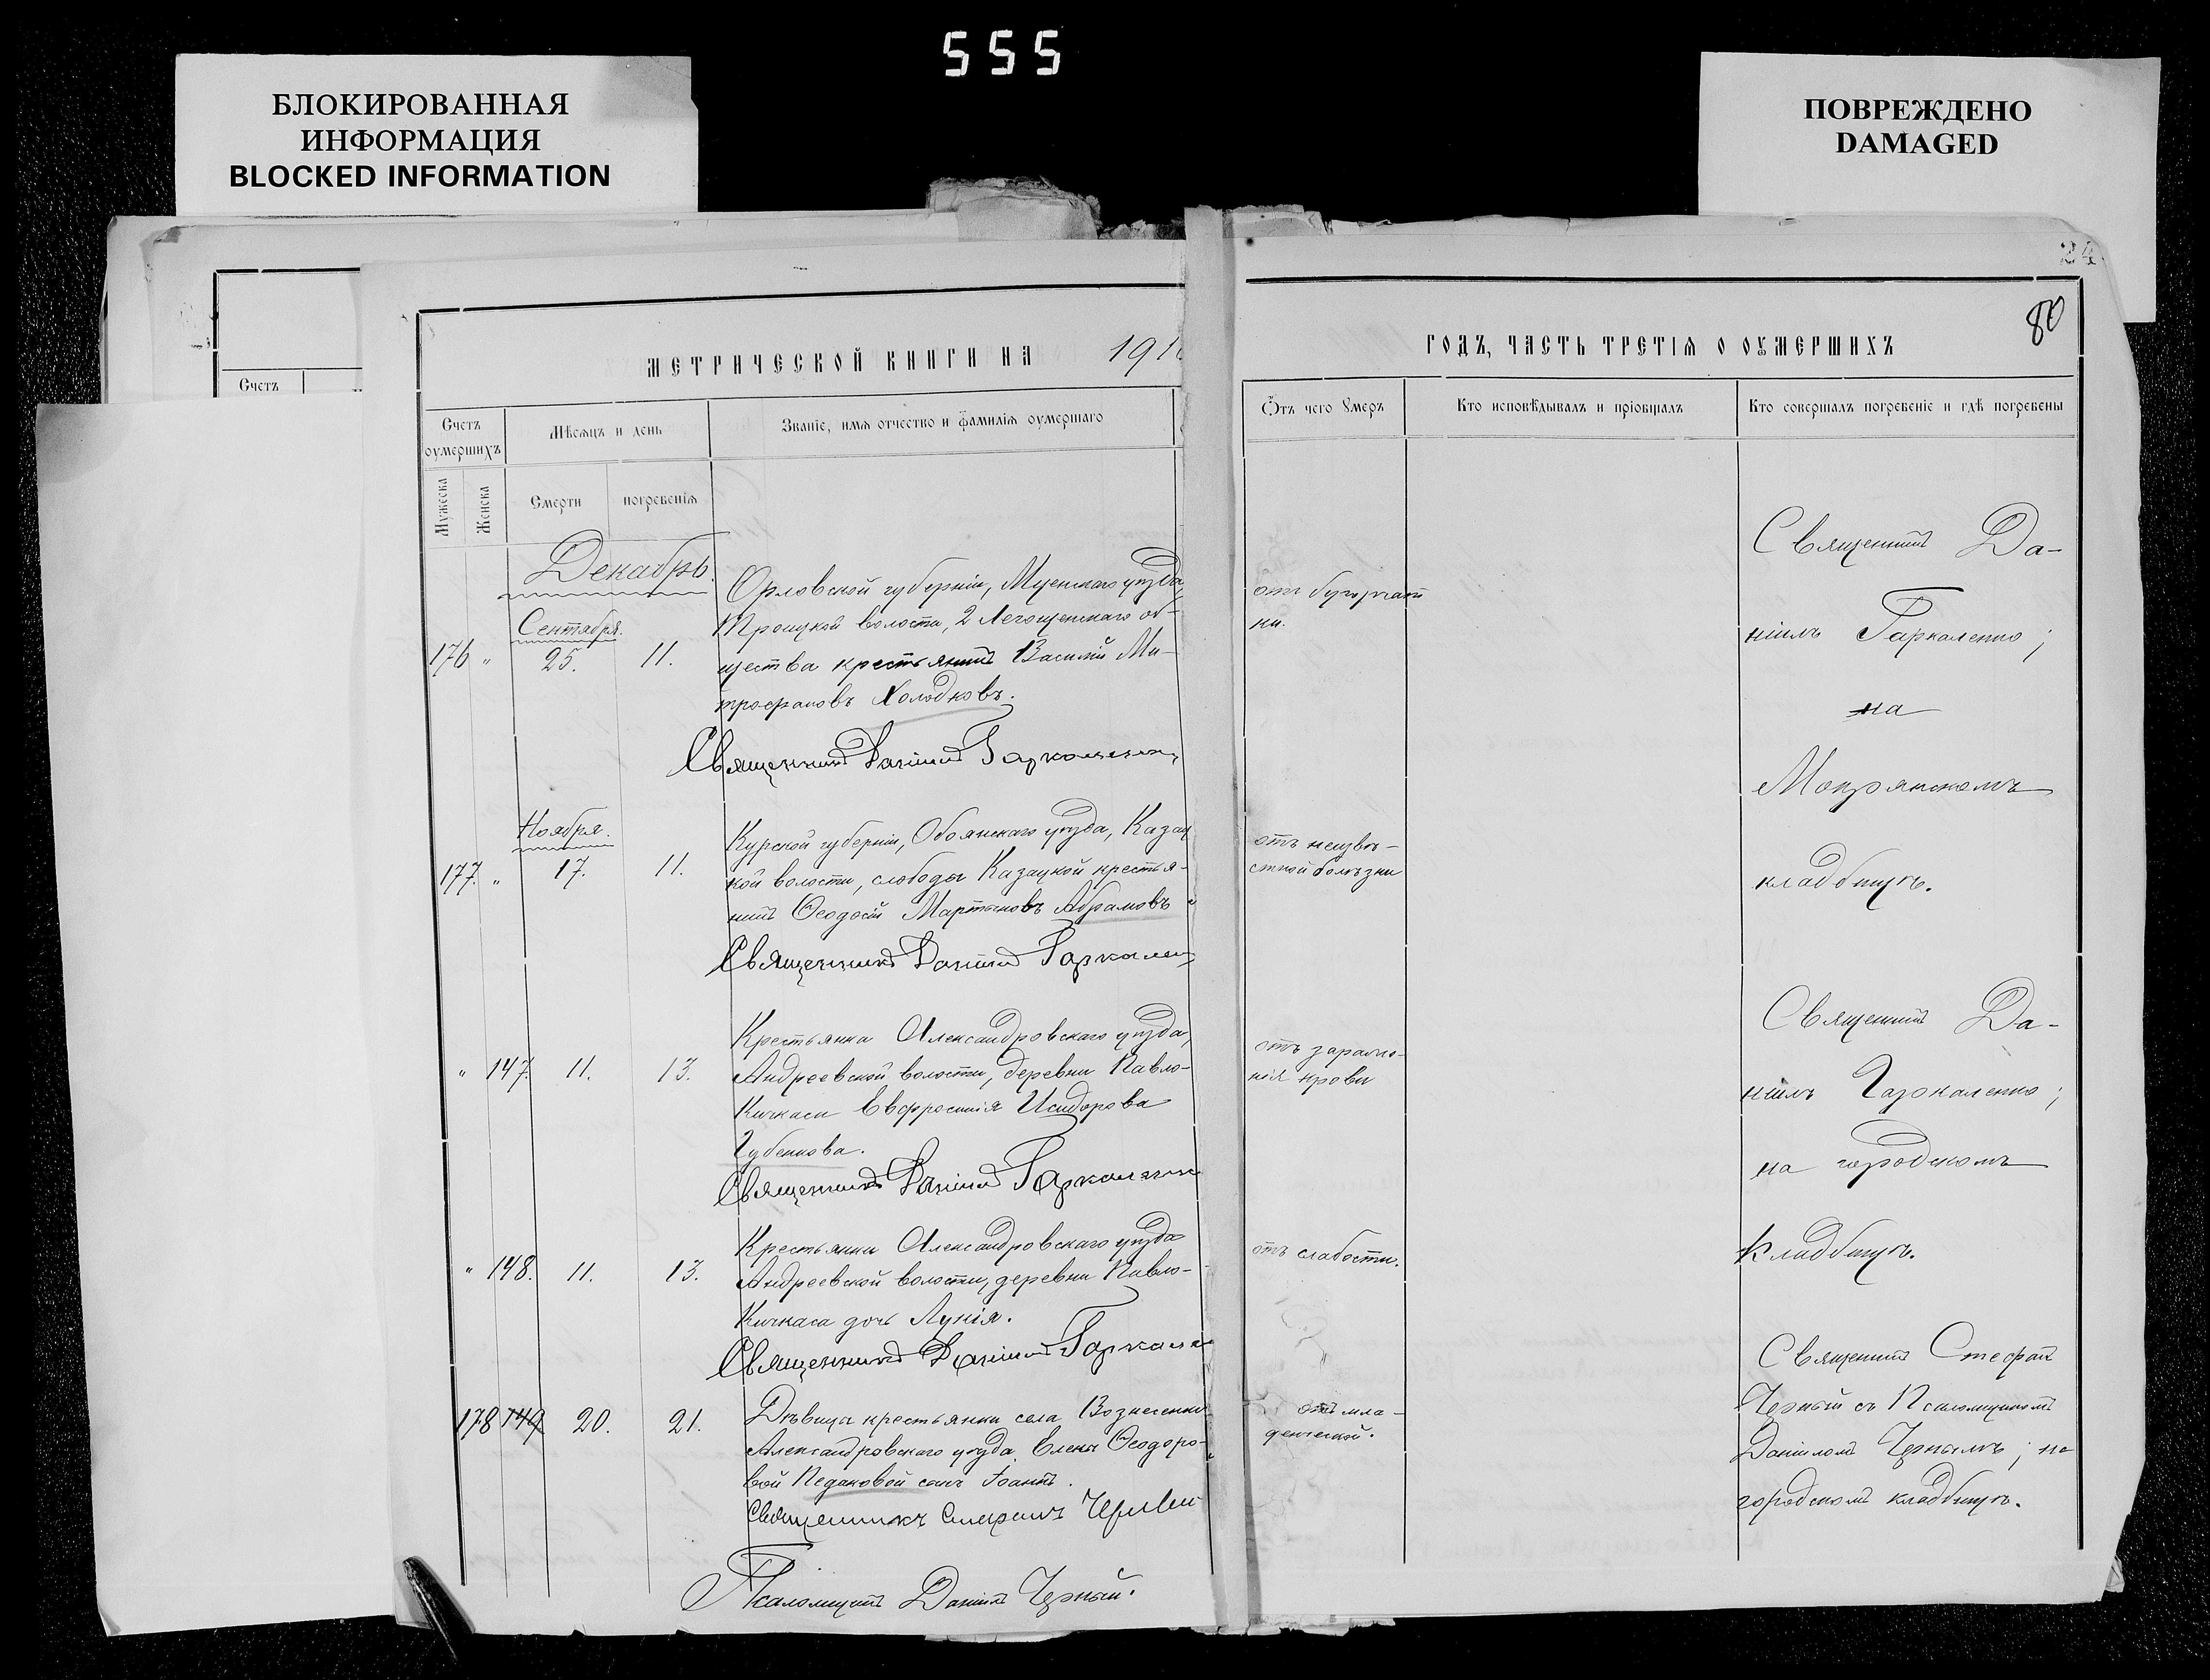 555
БЛОКИРОВАННАЯ
ИНФОРМАЦИЯ
BLOCKED INFORMATION
ПОВРЕЖДЕНО
DAMAGED
24
80
Счетъ
МЕТРИЧЕСКОЙ КНИГИ НА 191
Счетъ оумершихъ
Мужеска
Женска
Мѣсяцъ и день
Смерти
погребенія
Званіе, имя отчество и фамилія оумершаго
Декабрь.
Сентября.
176 " 25. 11.
Орловской губерніи, Мценскаго уѣзда,
Троицкой волости, 2 об-
щества крестьянинъ Василій Ми-
трофановъ Холодковъ.
Священникъ Даніилъ Гаркаленко
Ноября.
177. " 17. 11.
Курской губерніи, Обоянскаго уѣзда, Казац
кой волости, слободы Казацкой крестья-
нинъ Ѳеодосій Мартыновъ Абрамовъ
Священникъ Даніилъ Гаркален
" 147. 11. 13.
Крестьянка Александровскаго уѣзда,
Андреевской волости, деревни Павло-
Кичкаса Евфросинія Исидорова
Губенкова.
Священникъ Даніилъ Гаркаленко
" 148. 11. 13.
Крестьянки Александровскаго уѣзда
Андреевской волости, деревни Павло-
Кичкаса дочь
Священникъ Даніилъ Гаркале
178 149 20. 21.
Дѣвицы крестьянки села Вознесенки
Александровскаго уѣзда Елены Ѳеодоро-
вой Педановой сынъ Іоаннъ.
Священникъ Стефанъ Черный
Псаломщикъ Даніилъ Черный.
ГОДЪ, ЧАСТЬ ТРЕТІЯ О ОУМЕРШИХЪ
Отъ чего умеръ
Кто исповѣдывалъ и пріобщалъ
Кто совершалъ погребеніе и гдѣ погребены
отъ бугорчат
ки.
Священникъ Да-
ніилъ Гаркаленко;
на
Мокрянскомъ
кладбищѣ.
отъ неизвѣ-
стной болѣзни
отъ зараже-
нія крови
Священникъ Да-
ніилъ Гаркаленко;
на городскомъ
кладбищѣ.
отъ слабости.
отъ мла-
денческой.
Священникъ Стефанъ
Черный съ Псаломщикомъ
Даніиломъ Чернымъ; на
городскомъ кладбищѣ.